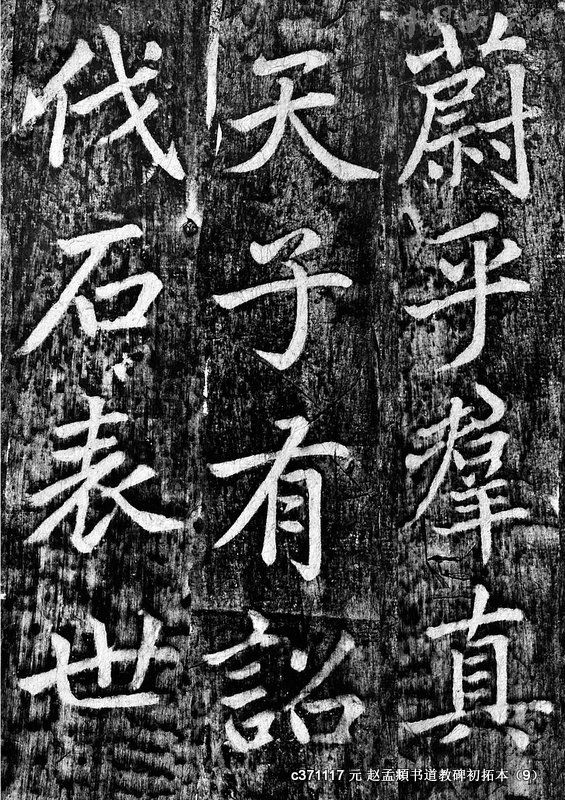 蔚乎羣真
天子有詔
伐石表世
c371117 元 赵孟頫书道教碑初拓本（9）